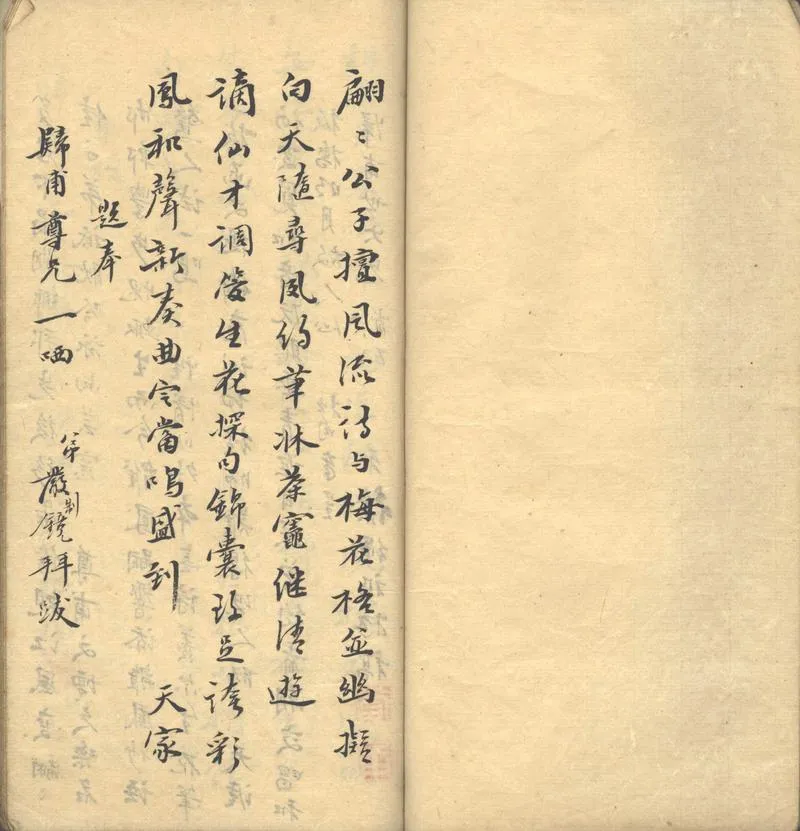 翩〻公子擅風流詩与梅花格並幽擬
向天隨尋夙約筆牀茶竈继清遊
謫仙才調生花探句錦囊足誇彩
鳳和聲新奏曲定當鳴盛到 天家
題奉
歸甫尊兄一哂
弟嚴制鏡拜跋